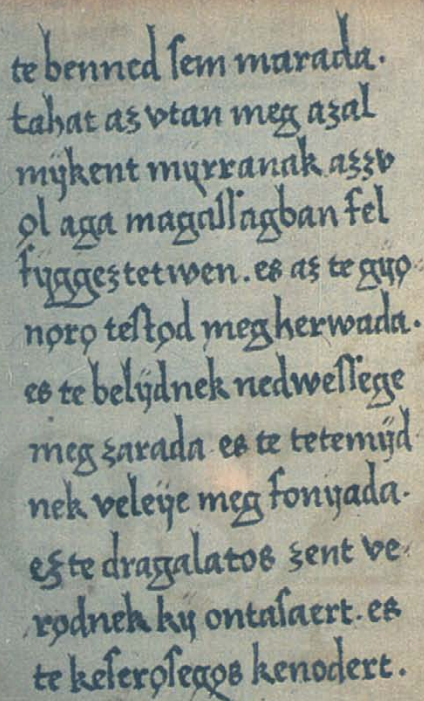 te benned ſem marada.
tahat az vtan meg azal
mÿkent mÿrranak azzv
ol aga magaſſagban fel
fÿggeztetwen. es az te gÿo
nọrọ teſtọd meg herwada.
es te belÿdnek nedweſſege
meg zarada es te tetemÿd
nek veleÿe meg fonÿada.
ez te dragalatos zent ve
rọdnek kÿ ontaſaert. es
te keſerọſegọs kenodert.